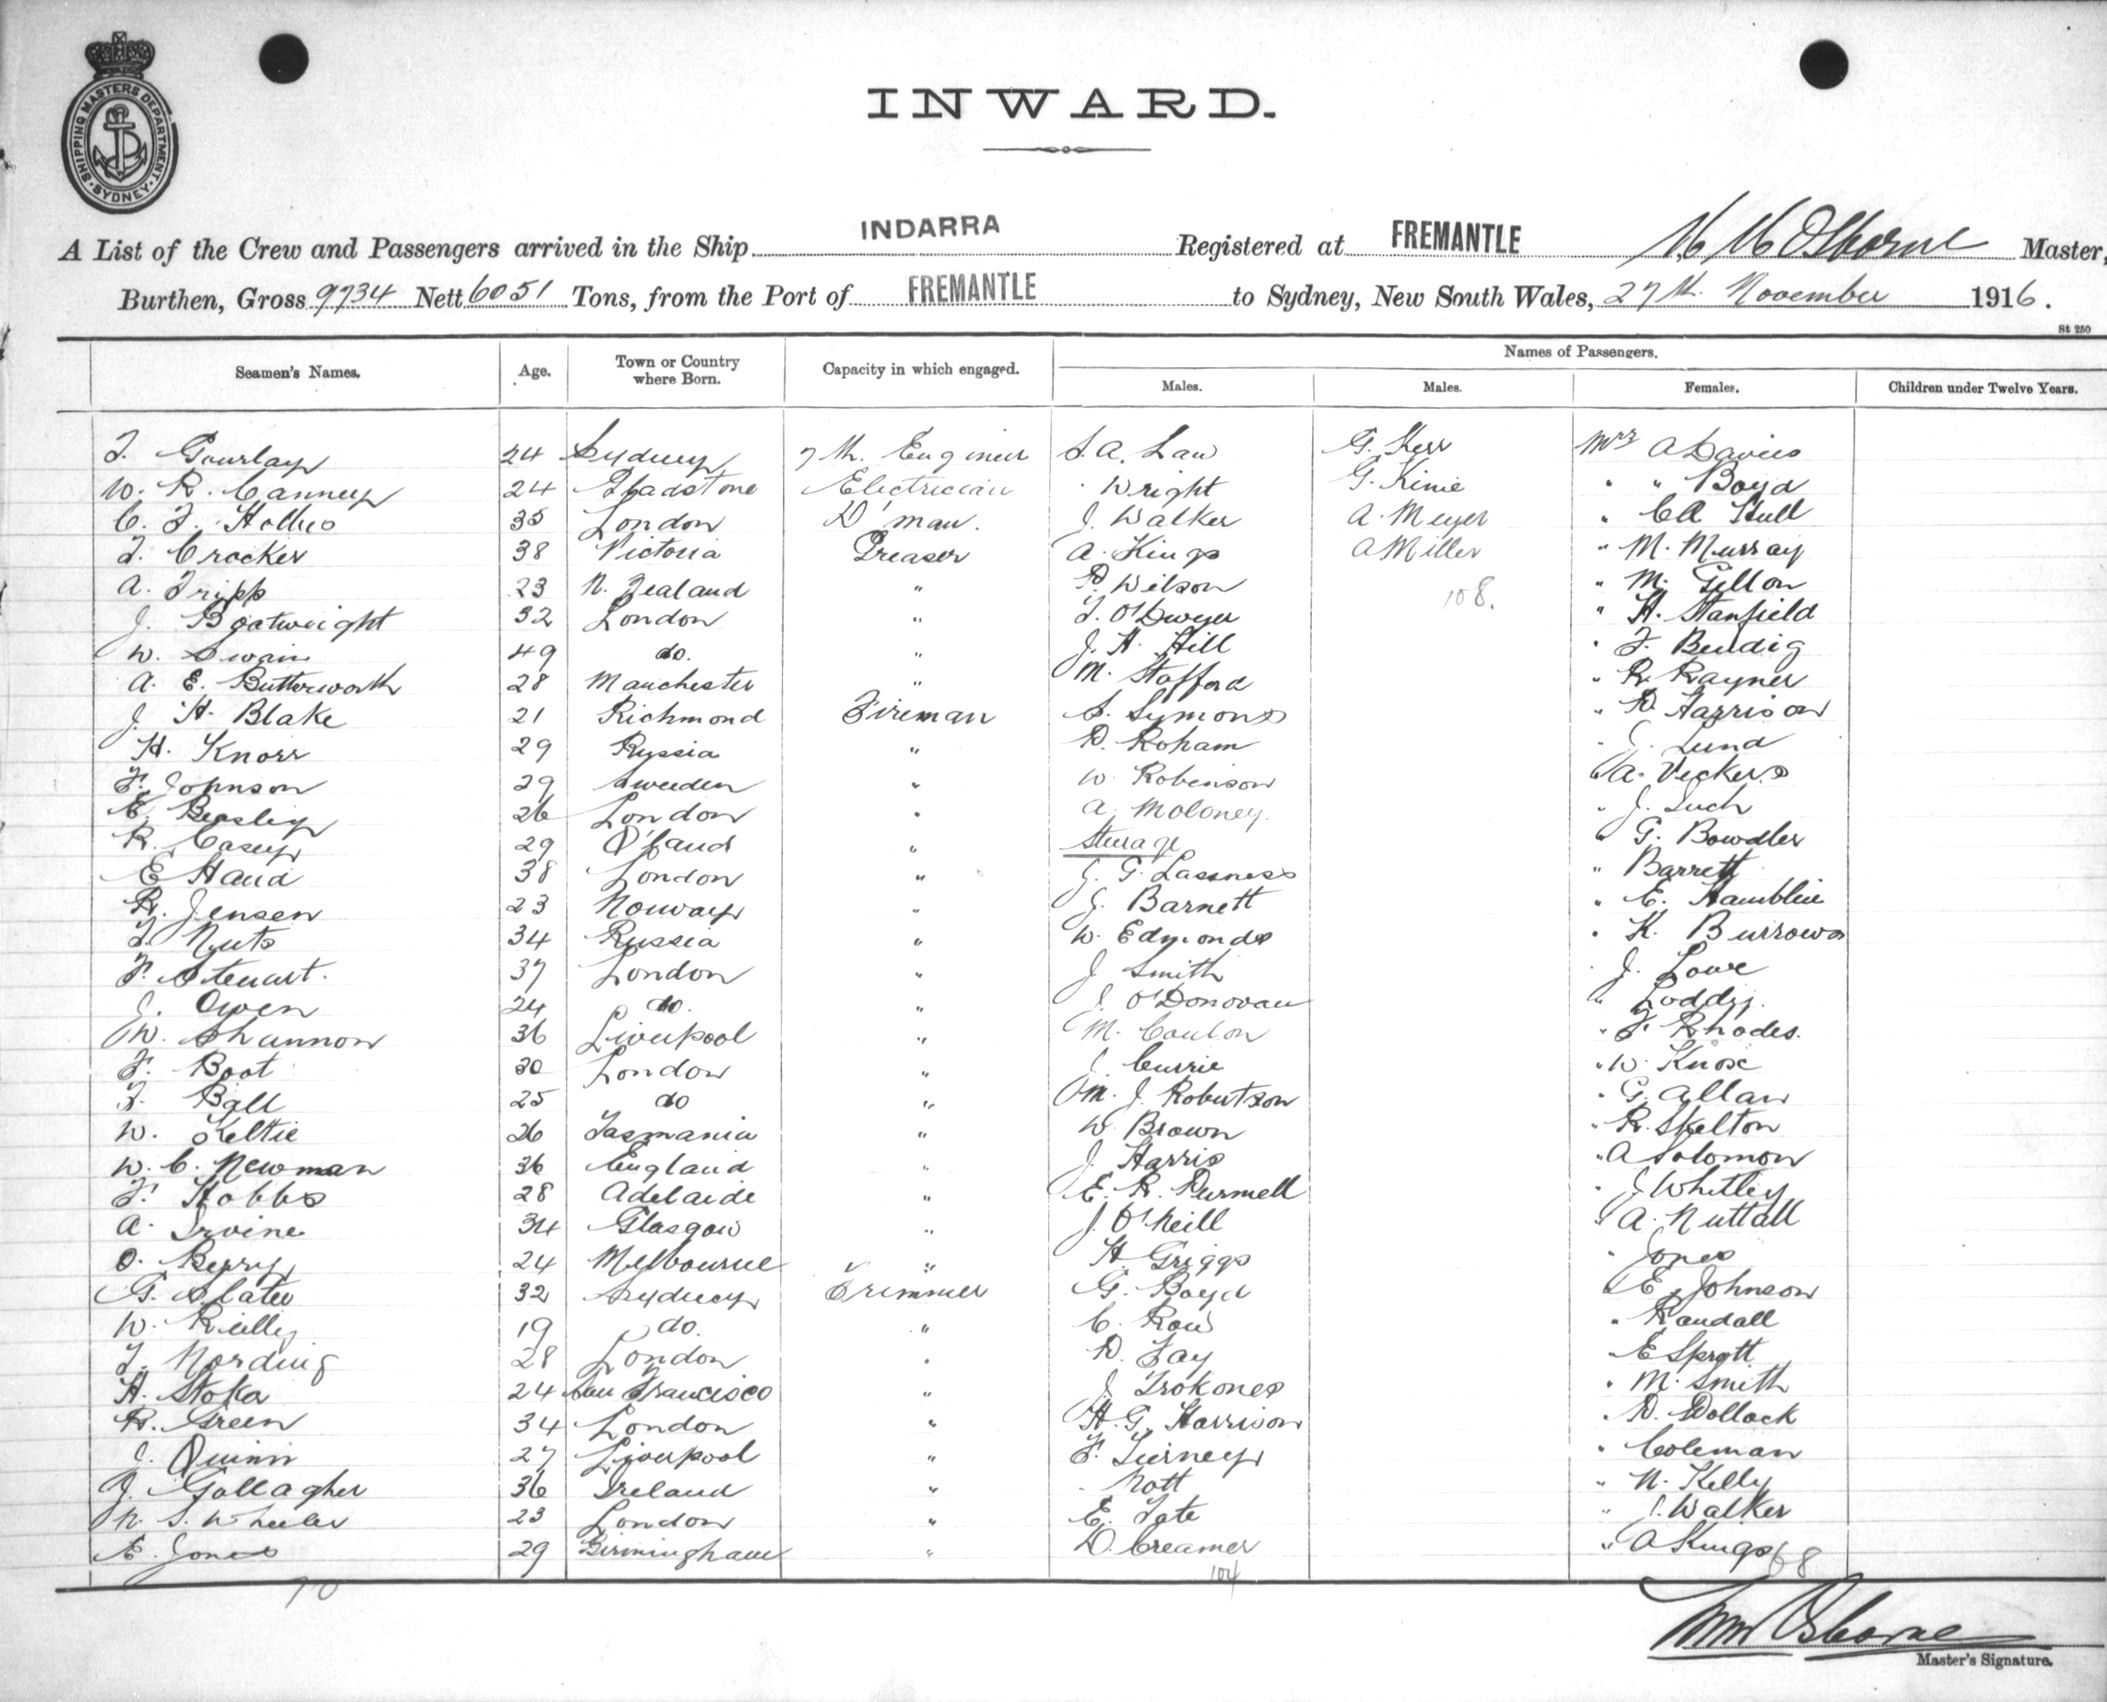 SHIPPING MASTERS DEPARTMENT. SYDNEY
INWARD.
A List of the Crew and Passengers arrived in the Ship INDARRA Registered at FREMANTLE Osborne Master,
Burthen, Gross 9734 Nett 6051 Tons, from the Port of FREMANTLE to Sydney, New South Wales, 27th November 1916.
St 250
Seamen's Names. Age. Town or Country where Born. Capacity in which engaged. Names of Passengers.
Males. Males. Females. Children under Twelve Years.
T. Gourlay 24 Sydney 7th Engineer S. A. Law G. Kerr Mrs A Davies
W. R. Canney 24 Gladstone Electrician " Wright G. Kinie " " Boyd
C. F. Hollis 35 London D'man. J. Walker A. Meyer " CA Hull
T. Crocker 38 Victoria Greaser A. Kings A Miller " M. Murray
A. Tripp 23 N. Zealand " D. Wilson 108. " M. Gellon
J. Boatwright 32 London " T. O'Dwyer " H. Stanfield
W. Swain 49 do. " J. H. Hill " F. Bendig
A. E. Butterworth 28 Manchester " M. Stafford " R. Rayner
J. H. Blake 21 Richmond Fireman S. Symons " D. Harrison
H. Knorr 29 Russia " D. Roham " Lund
F. Johnson 29 Sweden " W Robinson " A. Vickers
E. Beasley 26 London " A. Moloney " J. Such
R. Casey 29 Q'land " Steerage " G. Bowdler
E Hand 38 London " J. G. Lassness " Barrett
R. Jensen 23 Norway " J. Barnett " E. Hamblin
T. Nuts 34 Russia " W. Edmonds " K. Burrows
F. Steuart. 37 London " J Smith " J. Lowe
J. Owen 24 do. " J. O'Donovan " Loddy
W. Shannon 36 Liverpool " M. Conlon " F. Rhodes.
F. Boot 30 London " J Currie " W. Knox
F. Ball 25 do " M. J. Robertson " G. Allan
W. Keltie 26 Tasmania " W Brown " R. Skelton
W. C. Newman 36 England " J Harris " A Solomon
F. Hobbs 28 Adelaide " E. R. Durmell " J Whitley
A. Irvine 34 Glasgow " J. O'Neill " A. Nuttall
O. Berry 24 Melbourne " H Griggs " Jones
G. Slater 32 Sydney Trimmer G. Boyd " E. Johnson
W. Reilly 19 do. " C. Row " Randall
T. Nording 28 London " D. Fay " E Sprott
H. Stoka 24 San Francisco " J Trokones " M. Smith
R. Green 34 London " H. G. Harrison " D. Pollock
J. Quinn 27 Liverpool " F. Tierney " Coleman
J. Gallagher 36 Ireland " Nott " N. Kelly
N. S. Wheeler 23 London " E. Tate " J. Walker
E. Jones 29 Birmingham " D. Creamer " A Kings 68
70 104
Wm Osborne
Master's Signature.